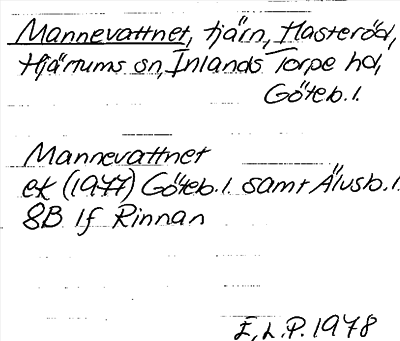 Mannevattnet, tjärn, Hasteröd,
Hjärtums sn, Inlands Torpe hd,
Göteb. l.
Mannevattnet
ek (1977) Göteb. l. samt Älvsb. l.
8B 1f Rinnan
E.L.P. 1978